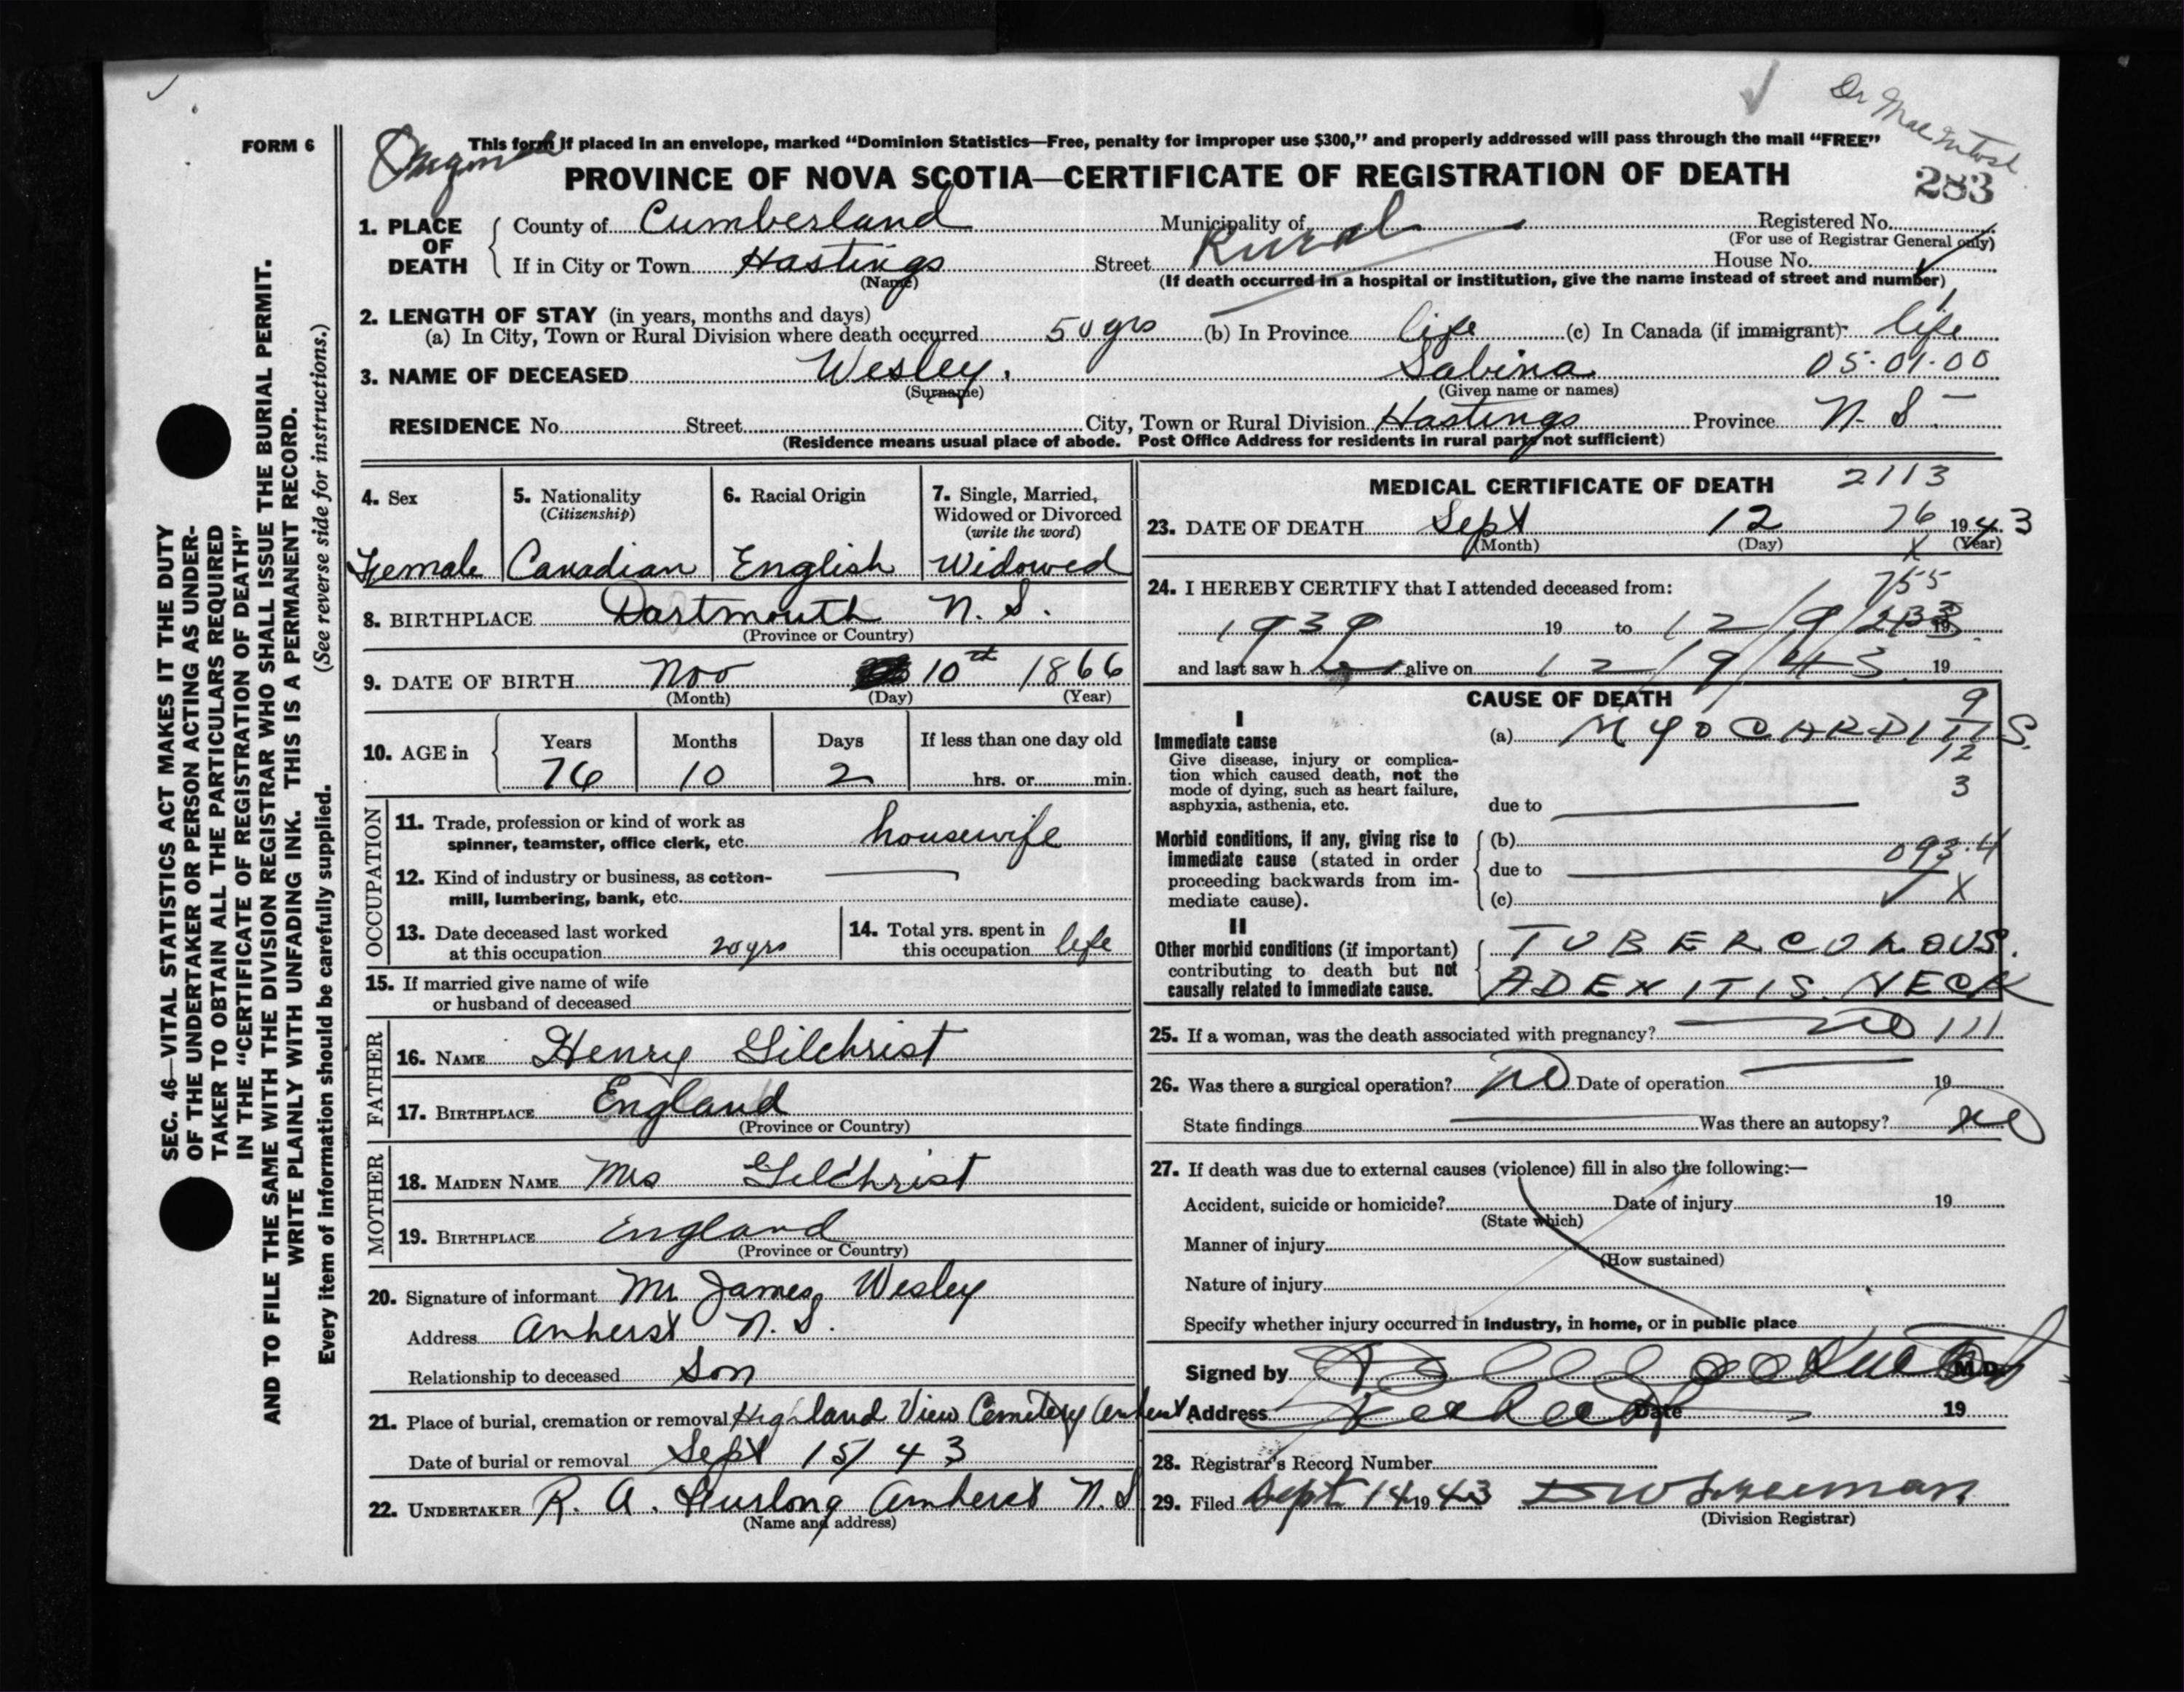 Dr MacIntosh
FORM 6
This form if placed in an envelope, marked "Dominion Statistics—Free, penalty for improper use $300," and properly addressed will pass through the mail "FREE"
PROVINCE OF NOVA SCOTIA—CERTIFICATE OF REGISTRATION OF DEATH
283
1. PLACE OF DEATH County of Cumberland Municipality of Rural Registered No.
(For use of Registrar General only)
If in City or Town Hastings Street House No.
(Name) (If death occurred in a hospital or institution, give the name instead of street and number)
2. LENGTH OF STAY (in years, months and days)
(a) In City, Town or Rural Division where death occurred 50 yrs (b) In Province life (c) In Canada (if immigrant) life
3. NAME OF DECEASED Wesley, Sabina 05-01-00
(Surname) (Given name or names)
RESIDENCE No. Street City, Town or Rural Division Hastings Province N.S.
(Residence means usual place of abode. Post Office Address for residents in rural parts not sufficient)
4. Sex 5. Nationality 6. Racial Origin 7. Single, Married,
(Citizenship) Widowed or Divorced
(write the word)
Female Canadian English Widowed
8. BIRTHPLACE Dartmouth N.S.
(Province or Country)
9. DATE OF BIRTH Nov 10th 1866
(Month) (Day) (Year)
10. AGE in Years Months Days If less than one day old
76 10 2 hrs. or min.
OCCUPATION
11. Trade, profession or kind of work as
spinner, teamster, office clerk, etc. housewife
12. Kind of industry or business, as cotton-
mill, lumbering, bank, etc.
13. Date deceased last worked
at this occupation 20 yrs
14. Total yrs. spent in
this occupation life
15. If married give name of wife
or husband of deceased
FATHER
16. NAME Henry Gilchrist
17. BIRTHPLACE England
(Province or Country)
MOTHER
18. MAIDEN NAME Mrs Gilchrist
19. BIRTHPLACE England
(Province or Country)
20. Signature of informant Mr James Wesley
Address Amherst N.S.
Relationship to deceased Son
21. Place of burial, cremation or removal Highland View Cemetery Amherst
Date of burial or removal Sept 15/43
22. UNDERTAKER R. A. Furlong Amherst N.S
(Name and address)
MEDICAL CERTIFICATE OF DEATH 2113
23. DATE OF DEATH Sept 12 76 1943
(Month) (Day) X (Year)
24. I HEREBY CERTIFY that I attended deceased from: 755
1939 19 to 12/9/ 19
and last saw h alive on 12/9/43 19
CAUSE OF DEATH
I
Immediate cause
Give disease, injury or complica-
tion which caused death, not the
mode of dying, such as heart failure,
asphyxia, asthenia, etc.
(a) MYOCARDITIS.
9
12
3
due to
Morbid conditions, if any, giving rise to
immediate cause (stated in order
proceeding backwards from im-
mediate cause).
(b)
due to 093.4
(c) X
II
Other morbid conditions (if important)
contributing to death but not
causally related to immediate cause.
TUBERCULOUS.
ADENITIS. NECK
25. If a woman, was the death associated with pregnancy? no 111
26. Was there a surgical operation? no Date of operation 19
State findings Was there an autopsy? no
27. If death was due to external causes (violence) fill in also the following:—
Accident, suicide or homicide? Date of injury 19
(State which)
Manner of injury
(How sustained)
Nature of injury
Specify whether injury occurred in industry, in home, or in public place
Signed by M.D.
Address Date 19
28. Registrar's Record Number
29. Filed Sept 14 1943
(Division Registrar)
SEC. 46—VITAL STATISTICS ACT MAKES IT THE DUTY
OF THE UNDERTAKER OR PERSON ACTING AS UNDER-
TAKER TO OBTAIN ALL THE PARTICULARS REQUIRED
IN THE "CERTIFICATE OF REGISTRATION OF DEATH"
AND TO FILE THE SAME WITH THE DIVISION REGISTRAR WHO SHALL ISSUE THE BURIAL PERMIT.
WRITE PLAINLY WITH UNFADING INK. THIS IS A PERMANENT RECORD.
Every item of information should be carefully supplied. (See reverse side for instructions.)